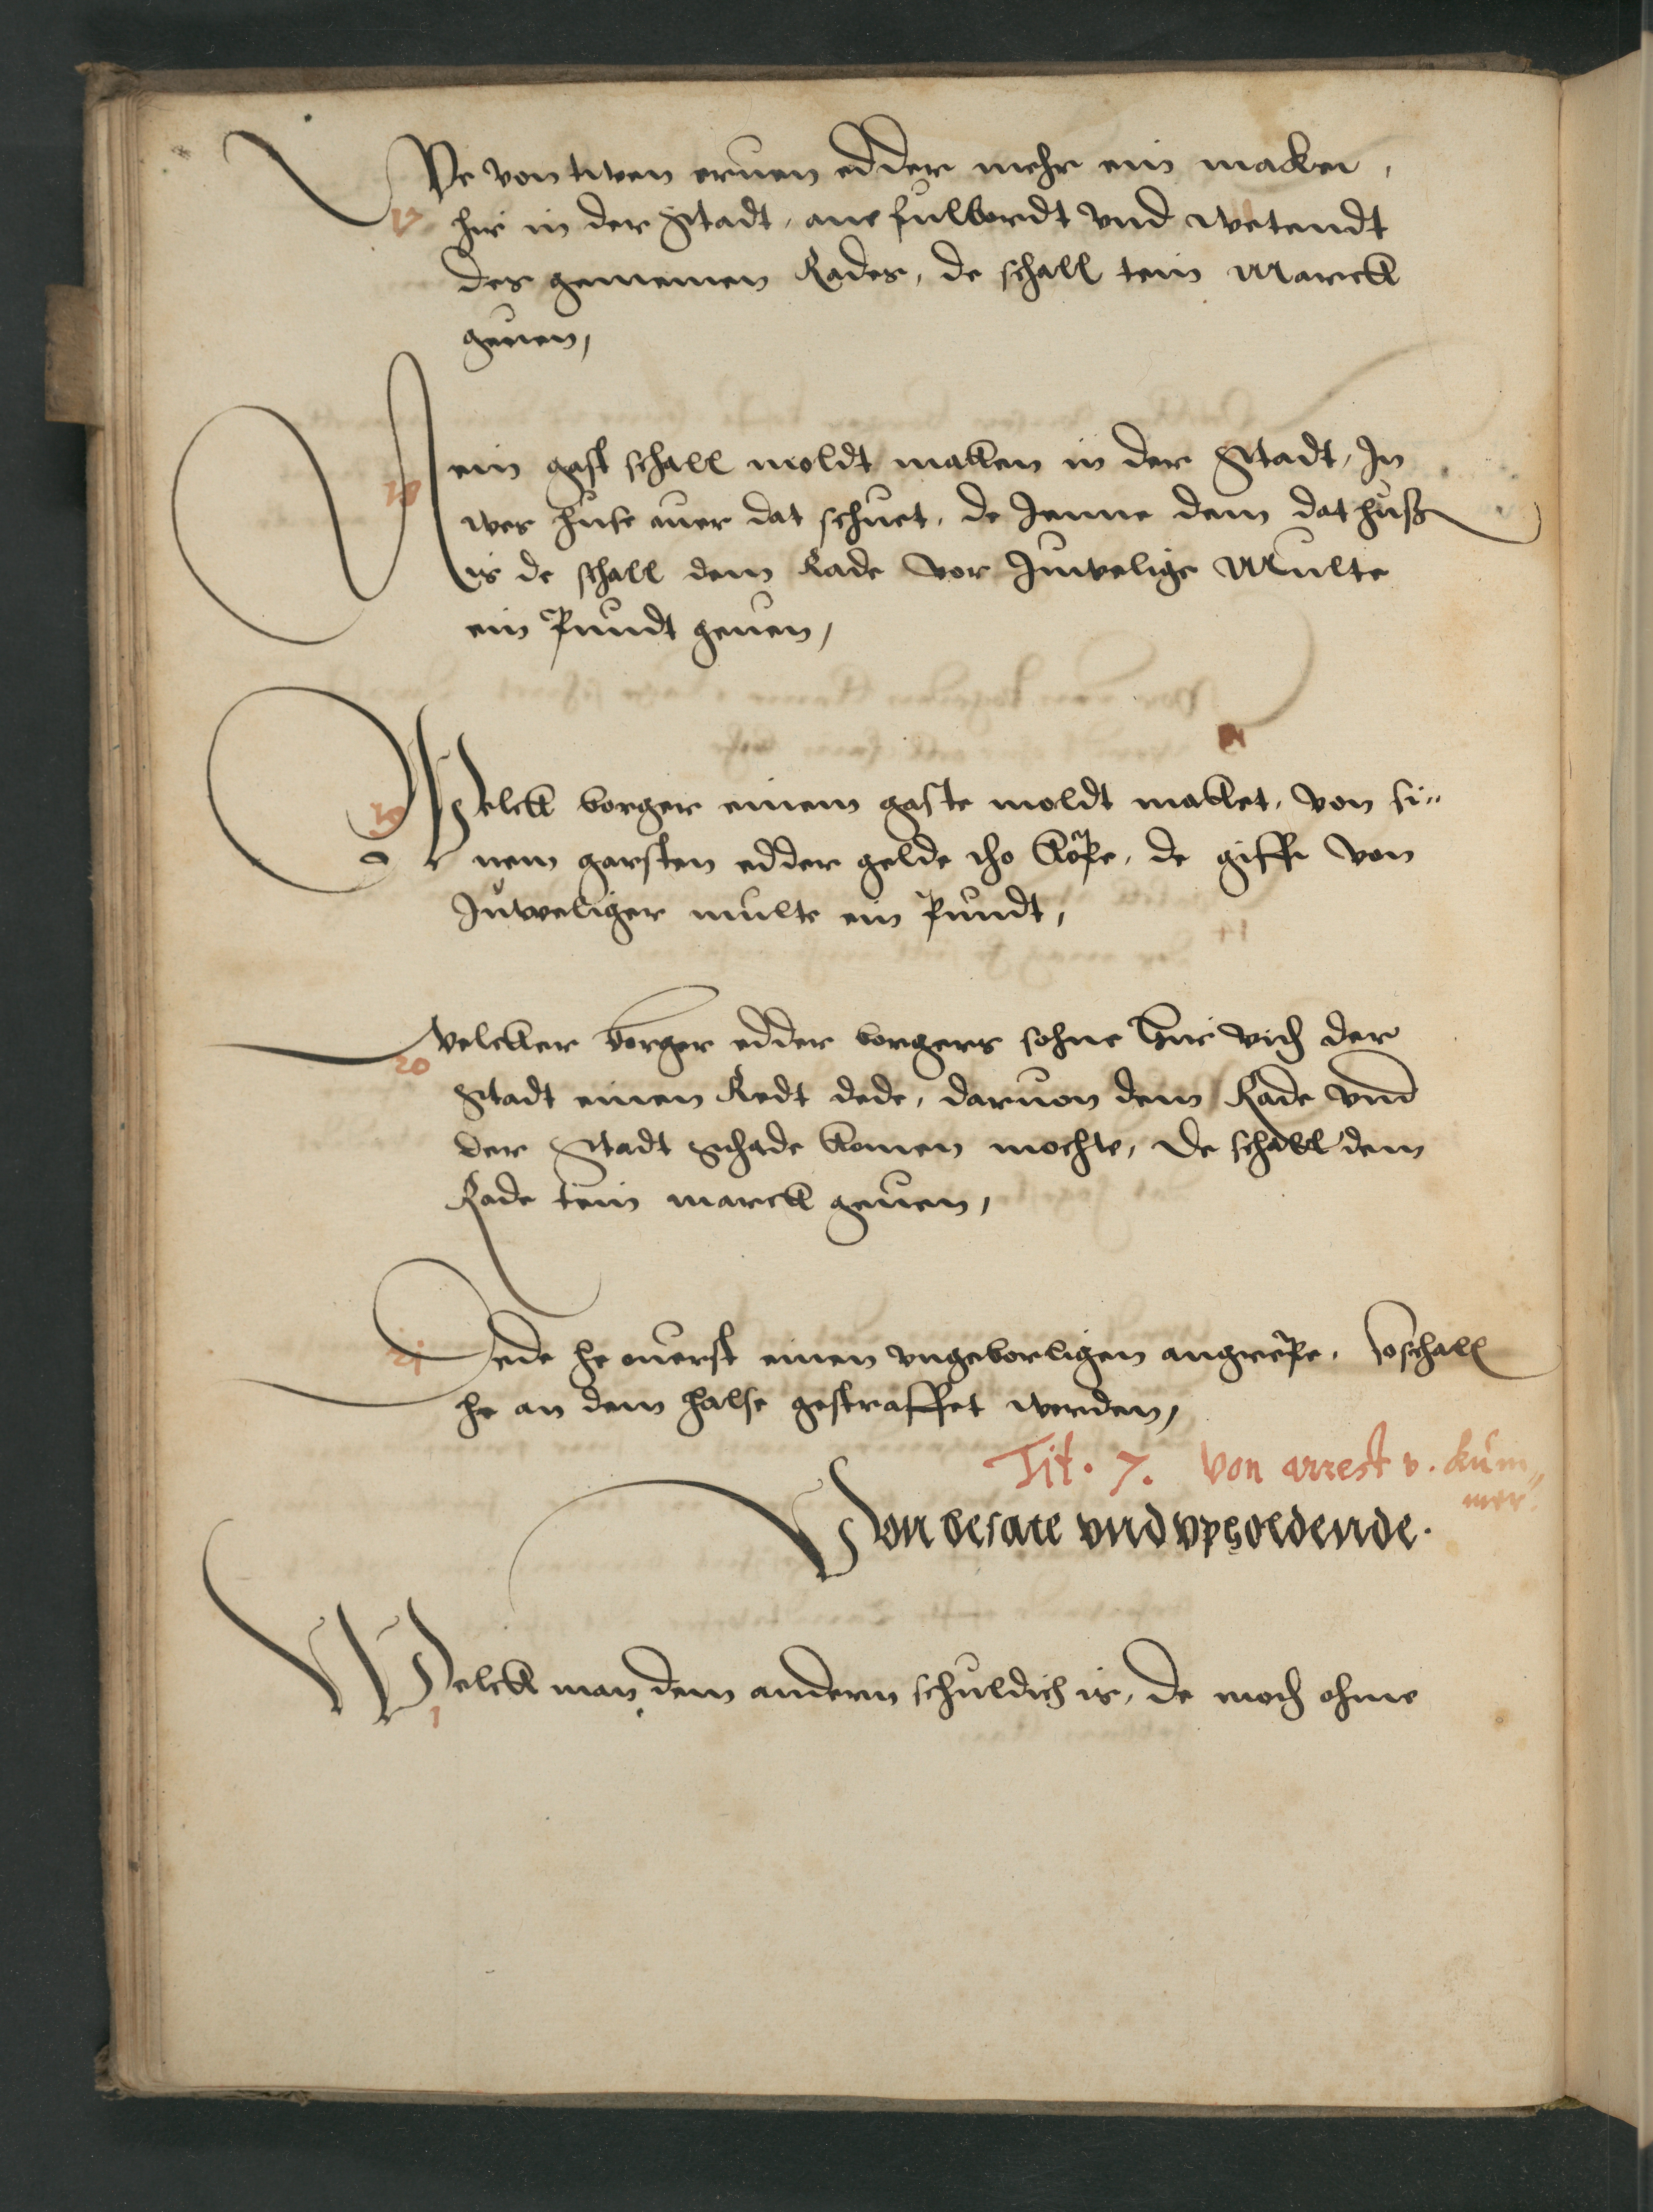 We von twen eruen edder mehr ein maken,
17 hir in der Stadt, ane fulbordt vnd wetendt
des gemeinen Rades, de schall tein Marck
geuen,
Nein gast schall moldt maken in der Stadt, In
18 wes huse auer dat schuet, de Jenne dem dat huß
is de schall dem Rade vor Juwelige Multe
ein Pundt geuen,
Welck borger einem gaste moldt maket, von si„
19 nem garsten edder gelde tho kope, de giffe von
Juweliger multe ein Pundt,
Welcker borger edder borgers sohne hir vth der
20 Stadt einen Redt dede, daruon dem Rade vnd
der Stadt Schade komen mochte, de schall dem
Rade tein marck geuen,
21 Dede he auerst einen vngeborligen angrepe, So schall
he an dem halse gestraffet werden,
Tit. 7. Von arrest v. kum„
mer.
Von besate vnd vpholdende.
Welck man dem andern schuldich is, de moth ohme
1